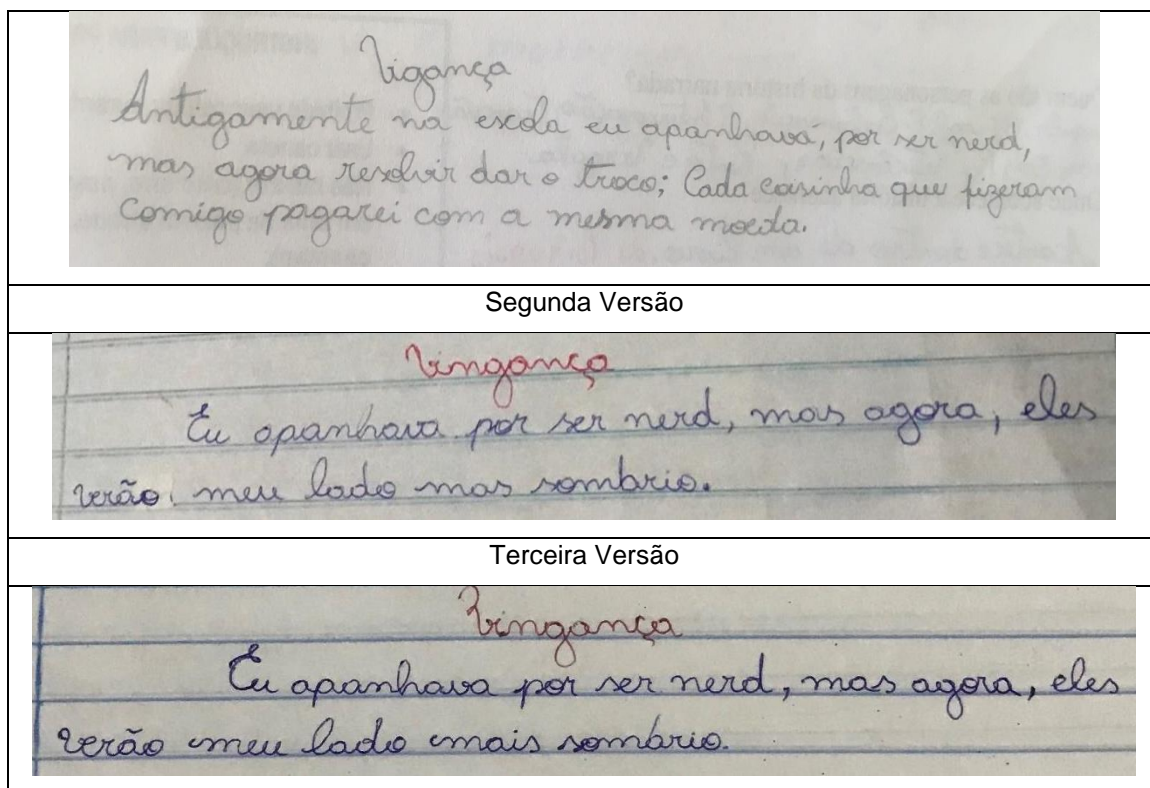 Vigança
Antigamente na escola eu apanhava, por ser nerd,
mas agora resolvir dar o troco; Cada coisinha que fizeram
comigo pagarei com a mesma moeda.
Segunda Versão
Vingança
Eu apanhava por ser nerd, mas agora, eles
verão meu lado mas sombrio.
Terceira Versão
Vingança
Eu apanhava por ser nerd, mas agora, eles
verão meu lado mais sombrio.